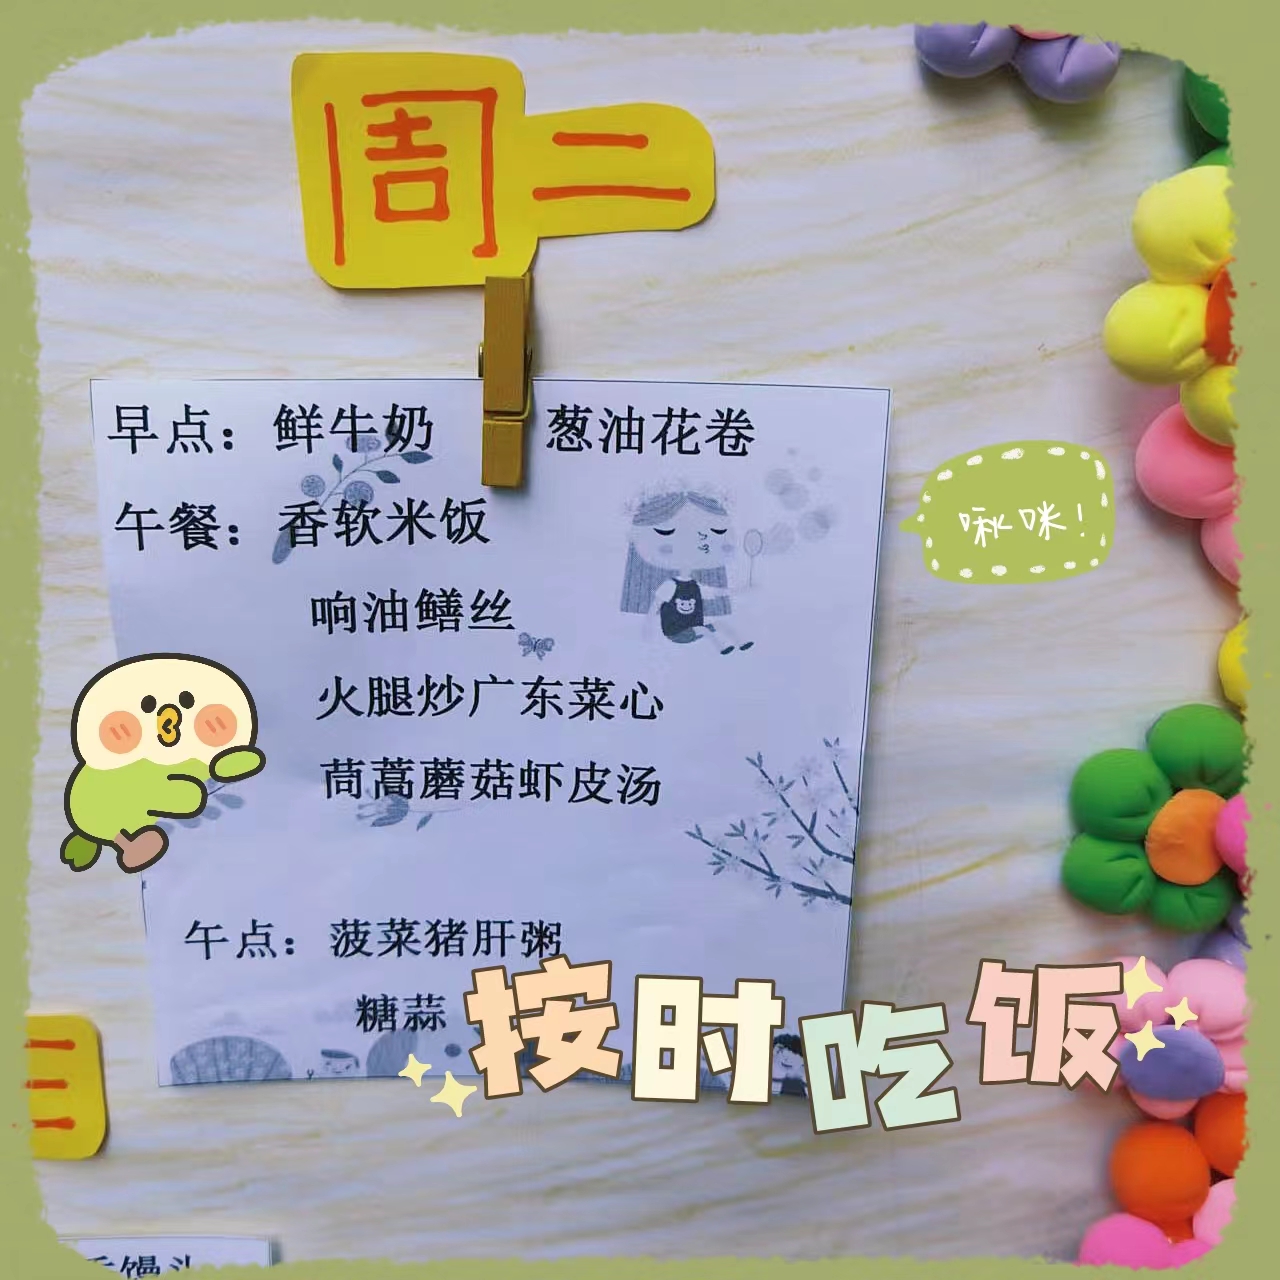 周二
早点：鲜牛奶 葱油花卷
午餐：香软米饭
响油鳝丝
啾咪！
火腿炒广东菜心
茼蒿蘑菇虾皮汤
午点：菠菜猪肝粥
糖蒜
按时吃饭
三
馒头